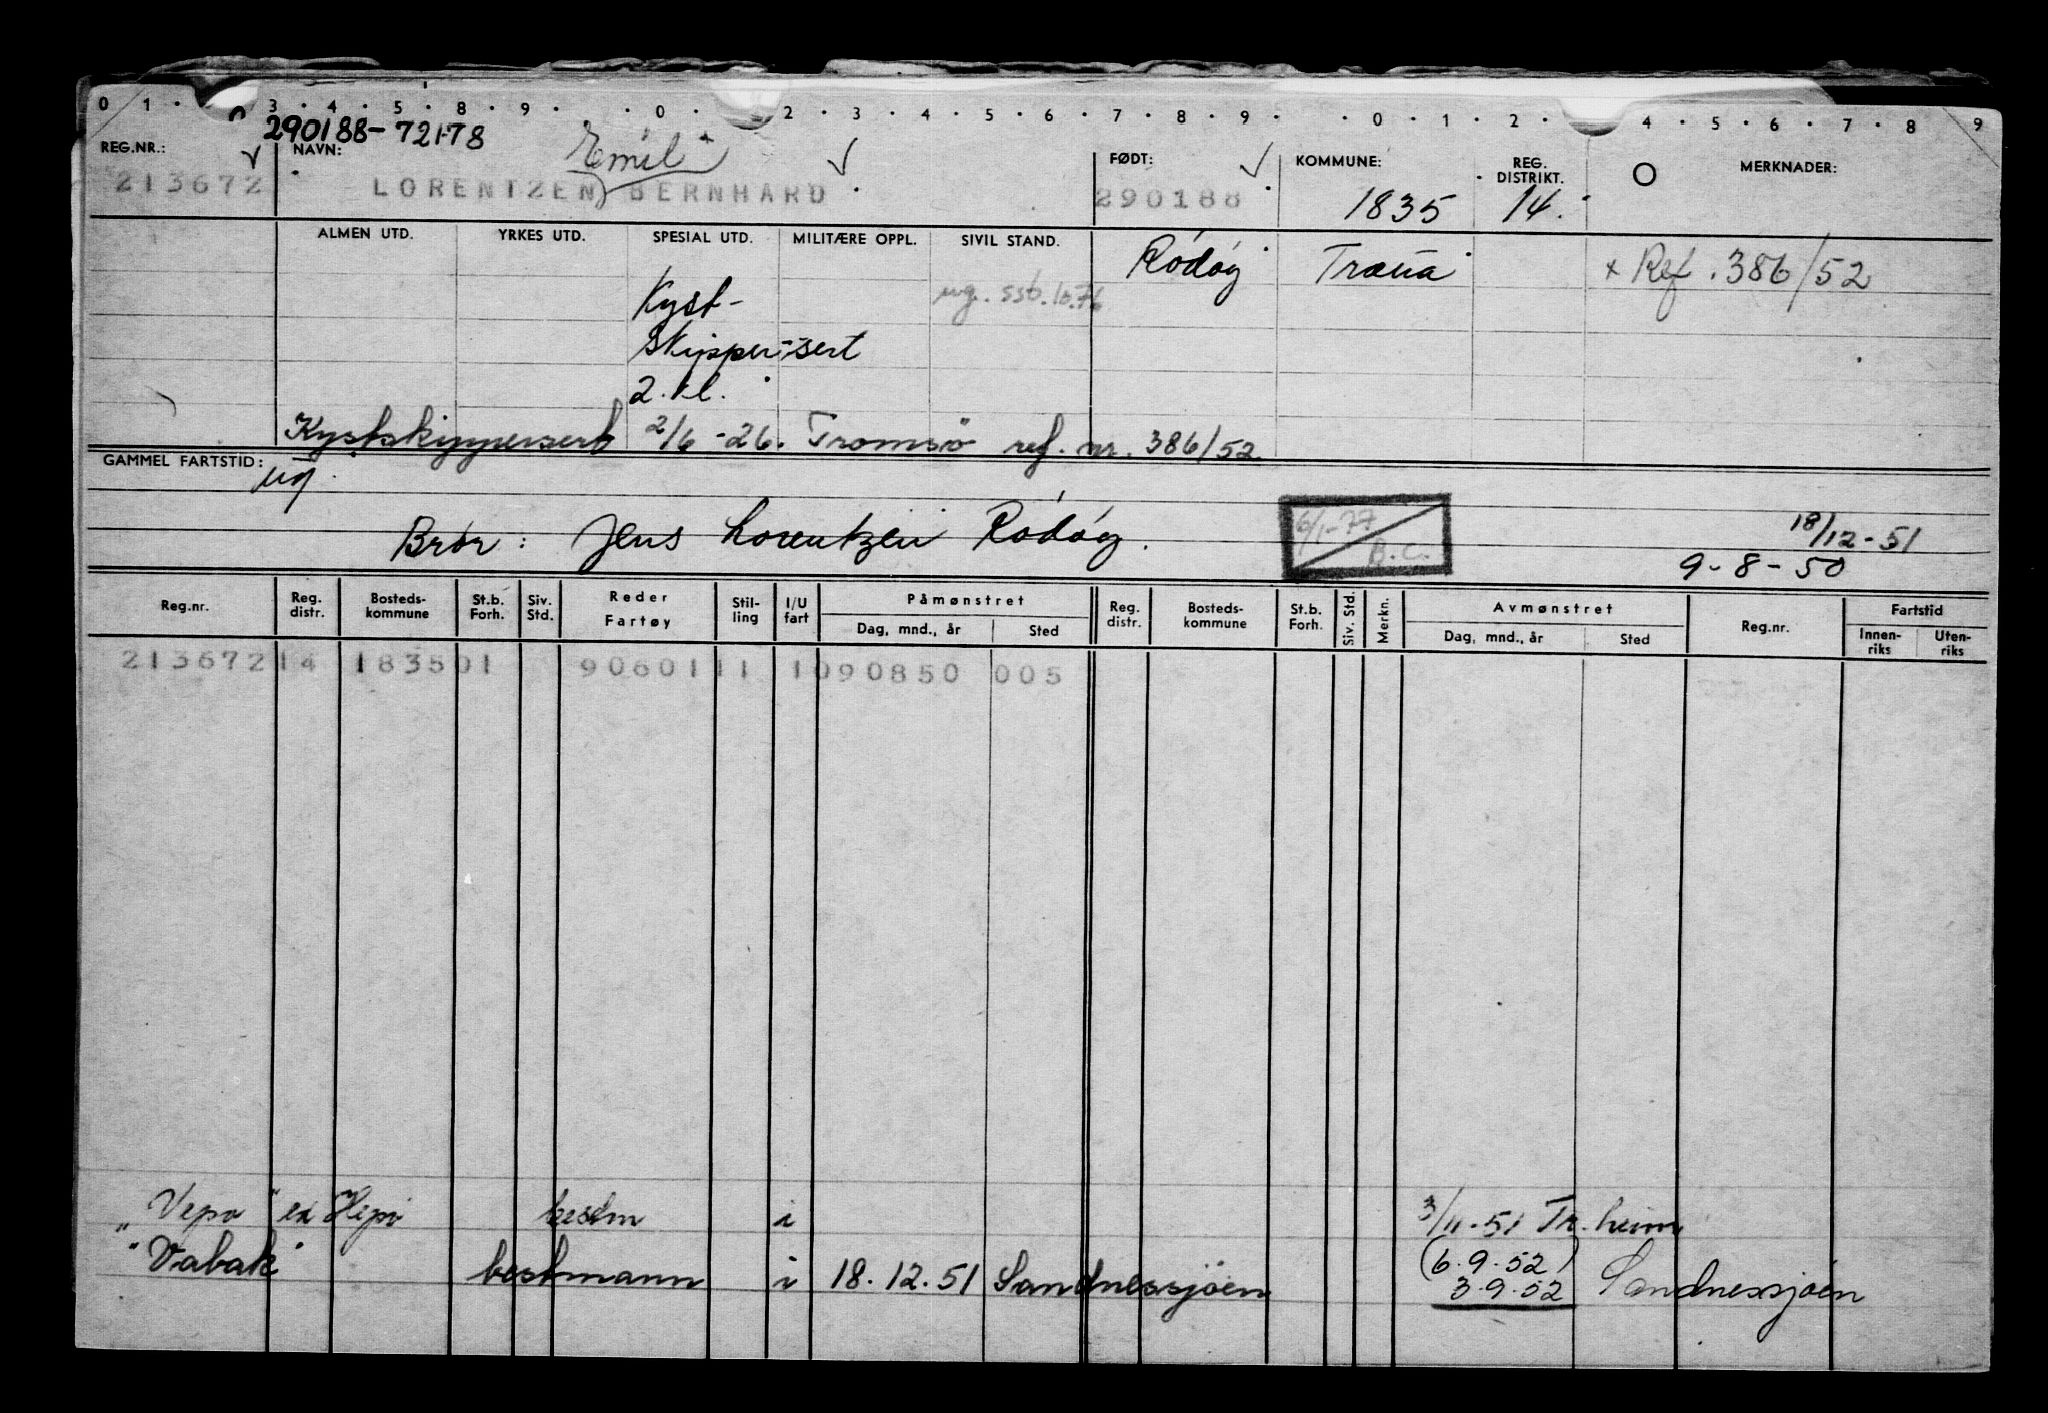 0 1 · 3 · 4 · 5 · 8 · 9 · · 0 · 2 · 3 · 4 · 5 · 6 · 7 · 8 · 9 · · 0 · 1 · 2 · 4 · 5 · 6 · 7 · 8 9
290188-72178
Emil
REG.NR.: NAVN: FØDT: KOMMUNE: REG. DISTRIKT. MERKNADER:
213672 LORENTZEN BERNHARD 290188 1835 14.
ALMEN UTD. YRKES UTD. SPESIAL UTD. MILITÆRE OPPL. SIVIL STAND.
Rödöy Træna x Ref. 386/52
Kyst- ug. ssb. 10.76
Skipper-sert
2. kl.
Kystskippersert 2/6-26. Tromsö ref. nr. 386/52.
GAMMEL FARTSTID: ug.
Bror: Jens Lorentzen Rödöy. 6/1-77 B.C. 18/12-51
9-8-50
Reg.nr. Reg. distr. Bosteds-kommune St.b. Forh. Siv. Std. Reder Fartøy Stil-ling I/U fart Påmønstret Dag, mnd., år Sted Reg. distr. Bosteds-kommune St.b. Forh. Siv. Std. Merkn. Avmønstret Dag, mnd., år Sted Reg.nr. Fartstid Innen-riks Uten-riks
213672 14 1835 01 9060111 1 090850 005
"Vepo" ex Hepo bestm i 3/11-51 Tr.heim
(6.9.52)
"Vabak" bestmann i 18.12.51 Sandnessjöen 3.9.52 Sandnessjöen